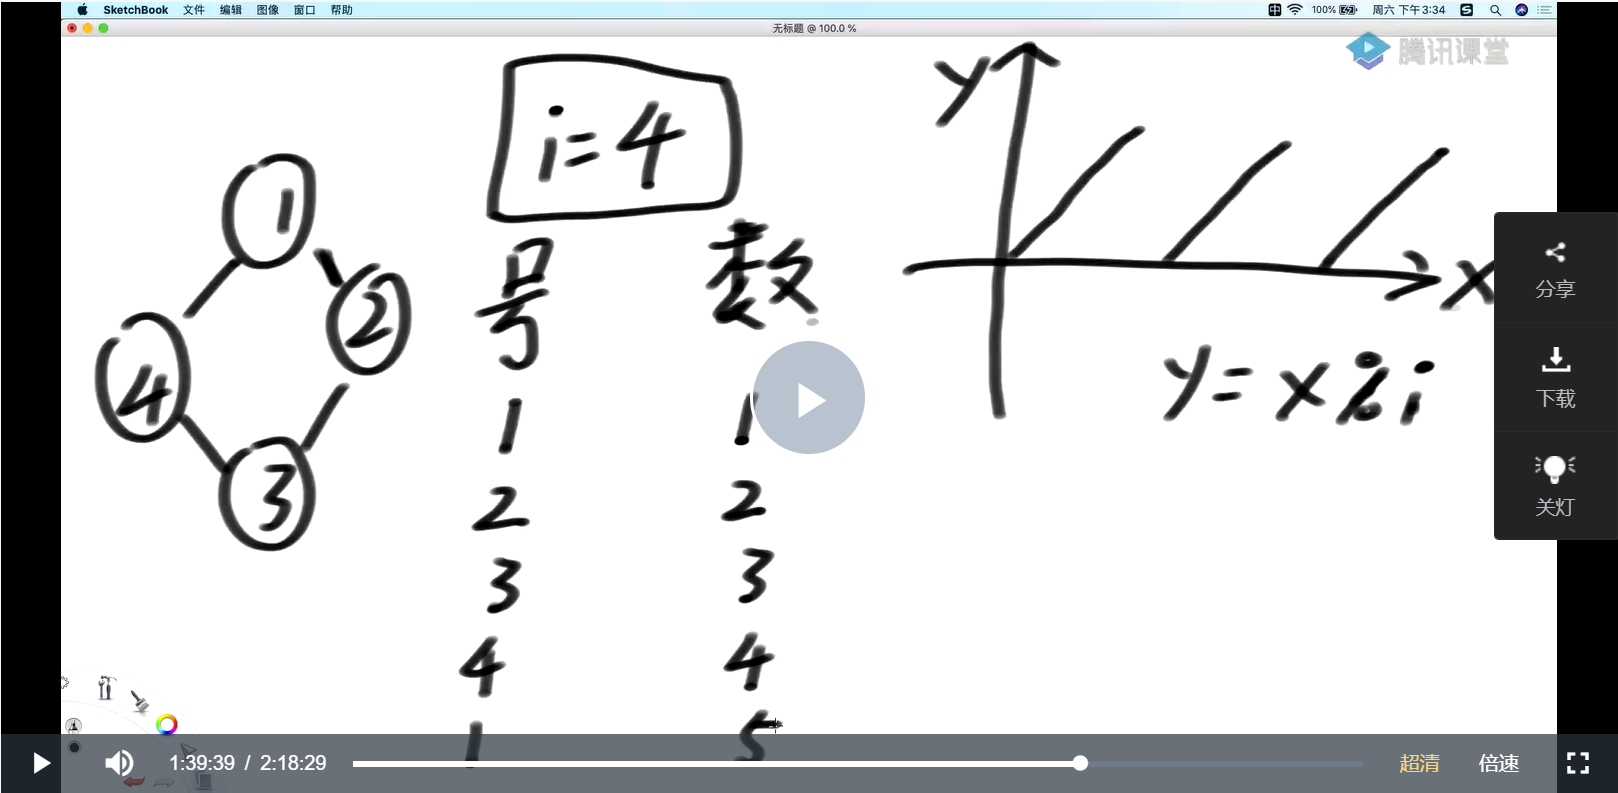 SketchBook 文件 编辑 图像 窗口 帮助 100% 周六 下午3:34
无标题 @ 100.0 %
腾讯课堂
i=4
y
x
1
2
4
3
号 数
1 1
2 2
3 3
4 4
1 5
y = x % i
分享
下载
关灯
1:39:39 / 2:18:29 超清 倍速